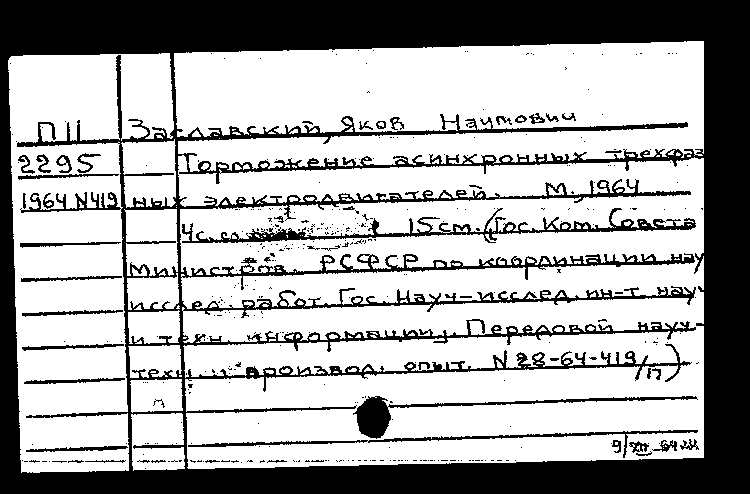 П11 Заславский, Яков Наумович
2295 Торможение асинхронных трехфаз
1964 N419 ных электродвигателей. М., 1964
4с. 15см. (Гос. Ком. Совета
Министров РСФСР по координации нау
исслед. работ. Гос. Науч-исслед. ин-т. науч
и техн. информации. Передовой науч-
техн. и производ. опыт. N 28-64-419/П)